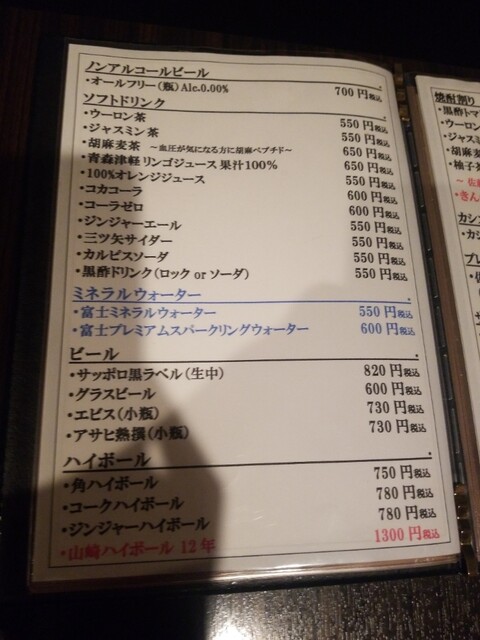 ノンアルコールビール
・オールフリー(瓶)Alc.0.00% 700円税込
ソフトドリンク
・ウーロン茶 550円税込
・ジャスミン茶 550円税込
・胡麻麦茶 ～血圧が気になる方に胡麻ペプチド～ 650円税込
・青森津軽リンゴジュース 果汁100% 650円税込
・100%オレンジジュース 550円税込
・コカコーラ 600円税込
・コーラゼロ 600円税込
・ジンジャーエール 550円税込
・三ツ矢サイダー 550円税込
・カルピスソーダ 550円税込
・黒酢ドリンク(ロック or ソーダ) 550円税込
ミネラルウォーター
・富士ミネラルウォーター 550円税込
・富士プレミアムスパークリングウォーター 600円税込
ビール
・サッポロ黒ラベル(生中) 820円税込
・グラスビール 600円税込
・エビス(小瓶) 730円税込
・アサヒ熟撰(小瓶) 730円税込
ハイボール
・角ハイボール 750円税込
・コークハイボール 780円税込
・ジンジャーハイボール 780円税込
・山崎ハイボール 12年 1300円税込
焼酎割り
・黒酢トマ
・ウーロン
・ジャスミ
・胡麻麦
・柚子
・きん
カシ
・カシ
プレ